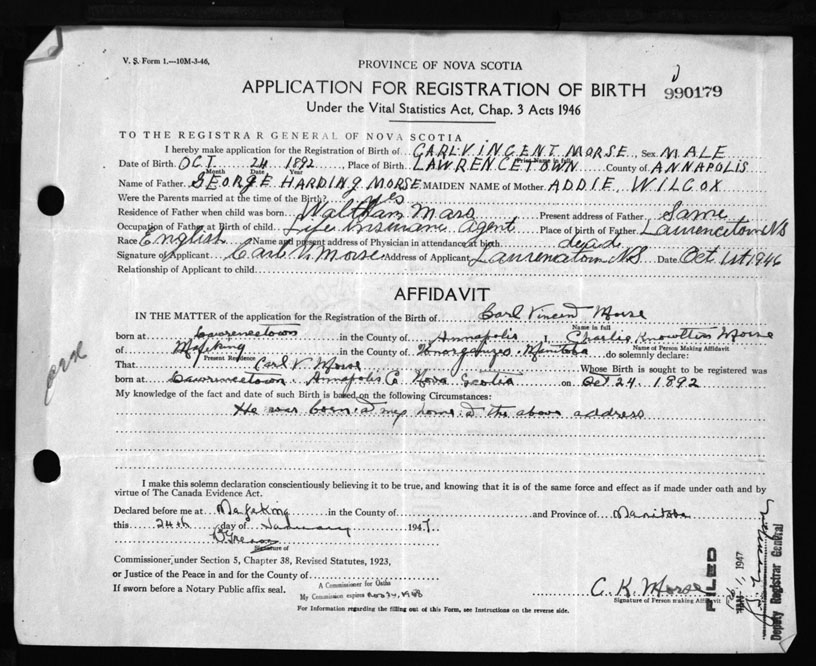 V. S. Form 1.—10M-3-46,
PROVINCE OF NOVA SCOTIA
APPLICATION FOR REGISTRATION OF BIRTH
990179
Under the Vital Statistics Act, Chap. 3 Acts 1946
TO THE REGISTRAR GENERAL OF NOVA SCOTIA
I hereby make application for the Registration of Birth of CARL VINCENT MORSE, Sex MALE
Print Name in full
Date of Birth OCT 24 1892, Place of Birth LAWRENCETOWN County of ANNAPOLIS
Month Date Year
Name of Father GEORGE HARDING MORSE MAIDEN NAME of Mother ADDIE WILCOX
Were the Parents married at the time of the Birth? yes
Residence of Father when child was born Waltham Mass Present address of Father Same
Occupation of Father at Birth of child Life Insurance Agent Place of birth of Father Lawrencetown NS
Race English Name and present address of Physician in attendance at birth dead
Signature of Applicant Carl V. Morse Address of Applicant Lawrencetown NS Date Oct 1st 1946
Relationship of Applicant to child
AFFIDAVIT
IN THE MATTER of the application for the Registration of the Birth of Carl Vincent Morse
Name in full
born at Lawrencetown in the County of Annapolis I, Charlie Knowlton Morse
Name of Person Making Affidavit
of Mafeking in the County of Manitoba do solemnly declare:
Present Residence
That Carl V. Morse Whose Birth is sought to be registered was
born at Lawrencetown Annapolis Co Nova Scotia on Oct 24. 1892
My knowledge of the fact and date of such Birth is based on the following Circumstances:
He was born at my home at the above address
I make this solemn declaration conscientiously believing it to be true, and knowing that it is of the same force and effect as if made under oath and by
virtue of The Canada Evidence Act.
Declared before me at Mafeking in the County of and Province of Manitoba
this 24th day of January 1947
Signature of
Commissioner, under Section 5, Chapter 38, Revised Statutes, 1923,
or Justice of the Peace in and for the County of
A Commissioner for Oaths
If sworn before a Notary Public affix seal.
My Commission expires
C. K. Morse
Signature of Person making Affidavit
For Information regarding the filling out of this Form, see Instructions on the reverse side.
FILED
1947
Deputy Registrar General